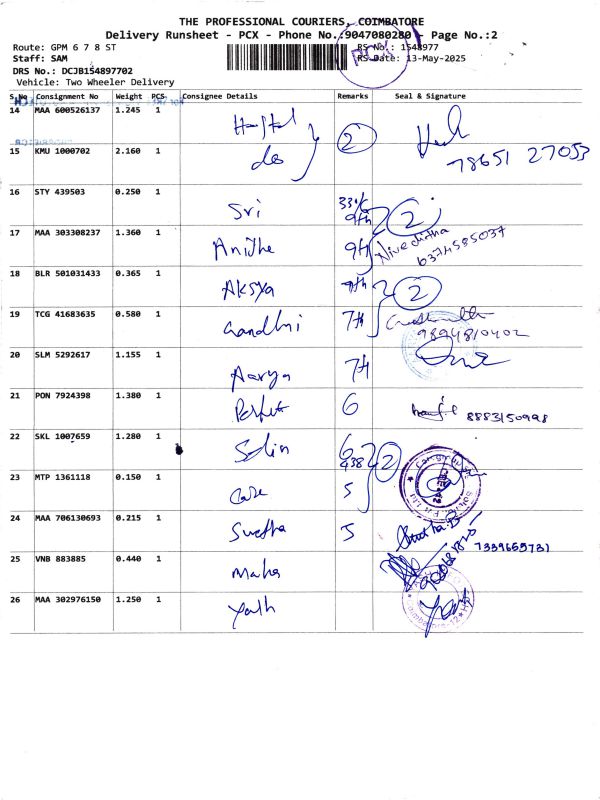 THE PROFESSIONAL COURIERS, COIMBATORE
Delivery Runsheet - PCX - Phone No.:9047080280 - Page No.:2
Route: GPM 6 7 8 ST
RS No.: 1548977
Staff: SAM
RS Date: 13-May-2025
DRS No.: DCJB154897702
Vehicle: Two Wheeler Delivery
S.No Consignment No Weight PCS Consignee Details Remarks Seal & Signature
14 MAA 600526137 1.245 1 Hospital 2
15 KMU 1000702 2.160 1 do 78651 27053
16 STY 439503 0.250 1 Sri 9th 2
17 MAA 303308237 1.360 1 9th Nivechitha
6374585037
18 BLR 501031433 0.365 1 Aksya 9th 2
19 TCG 41683635 0.580 1 Gandhi 7th
9894810402
20 SLM 5292617 1.155 1 Aarya 7th
21 PON 7924398 1.380 1 6 8883150998
22 SKL 1007659 1.280 1 6 2
23 MTP 1361118 0.150 1 Care 5
24 MAA 706130693 0.215 1 Swetha 5
7339655731
25 VNB 883885 0.440 1 Maha
26 MAA 302976150 1.250 1 Yath